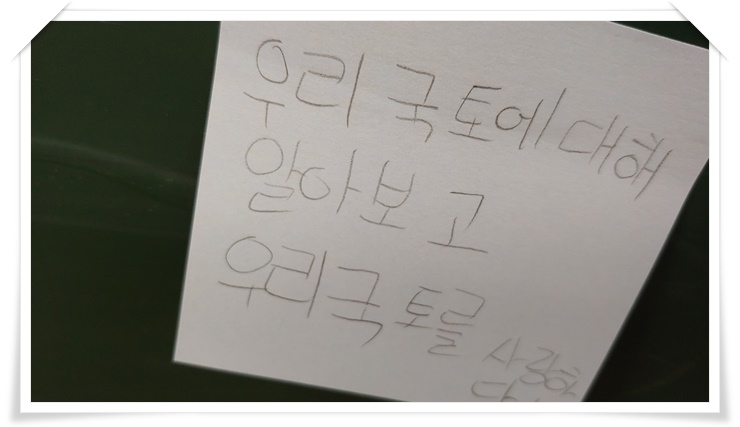 우리 국토에 대해
알아보고
우리국토를 사랑하